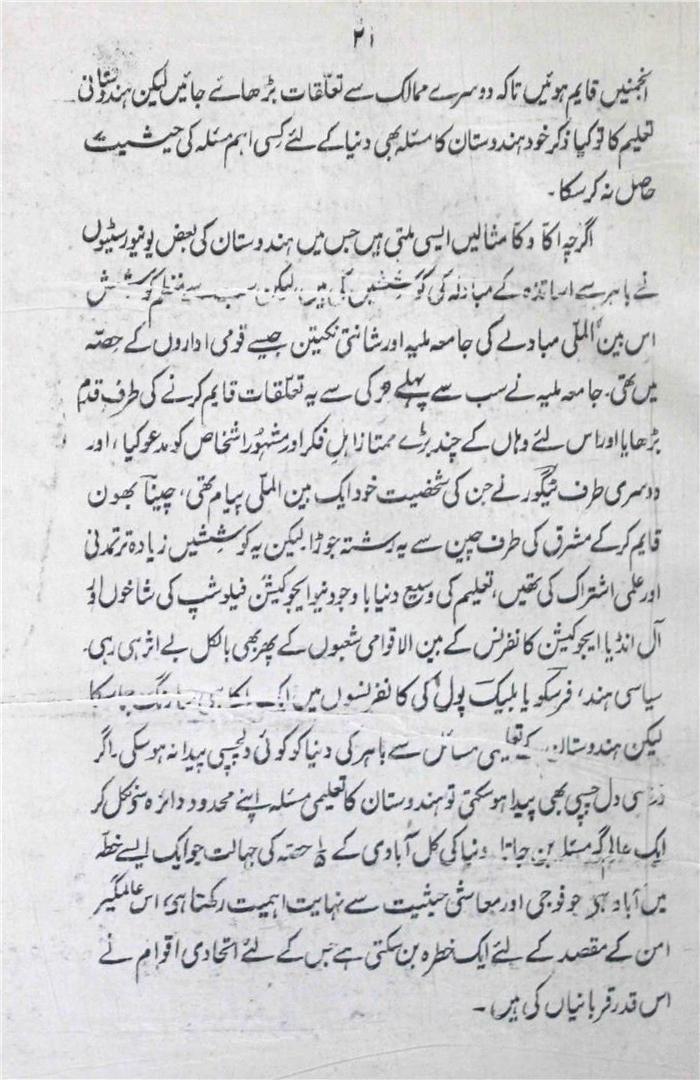 ۲۱
انجمنیں قایم ہوئیں تاکہ دوسرے ممالک سے تعلّقات بڑھائے جائیں لیکن ہندوستانی
تعلیم کا تو کیا ذکر خود ہندوستان کا مسئلہ بھی دنیا کے لئے کسی اہم مسئلہ کی حیثیت
حاصل نہ کرسکا۔
اگرچہ اکا دکا مثالیں ایسی ملتی ہیں جس میں ہندوستان کی بعض یونیورسٹیوں
نے باہر سے اساتذہ کے مبادلہ کی کوششیں کی ہیں، لیکن سب سے منظم کوشش
اس بین المِلّی مبادلے کی جامعہ ملیہ اور شانتی نکیتن جیسے قومی اداروں کے حصّہ
میں تھی۔ جامعہ ملیہ نے سب سے پہلے ترکی سے یہ تعلّقات قایم کرنے کی طرف قدم
بڑھایا اور اس لئے وہاں کے چند بڑے ممتاز اہلِ فکر اور مشہور اشخاص کو مدعو کیا، اور
دوسری طرف ٹیگور نے جن کی شخصیت خود ایک بین المِلّی پیام تھی، چینا بھون
قایم کرکے مشرق کی طرف چین سے یہ رشتہ جوڑا لیکن یہ کوششیں زیادہ تر تمدنی
اور علمی اشتراک کی تھیں، تعلیم کی وسیع دنیا باوجود نیو ایجوکیشن فیلوشپ کی شاخوں اور
آل انڈیا ایجوکیشن کانفرنس کے بین الاقوامی شعبوں کے پھر بھی بالکل بے اثر ہی رہی۔
سیاسی ہند، فرسکو یا بلیک پول کی کانفرنسوں میں ایک ہلکا رنگ جما سکا
لیکن ہندوستان کے تعلیمی مسائل سے باہر کی دنیا کو کوئی دلچسپی پیدا نہ ہوسکی۔ اگر
ذرا سی دل چسپی بھی پیدا ہوسکتی تو ہندوستان کا تعلیمی مسئلہ اپنے محدود دائرہ سے نکل کر
ایک عالمگیر مسئلہ بن جاتا۔ دنیا کی کل آبادی کے حصّہ کی جہالت جو ایک ایسے خطّہ
میں آباد ہے جو فوجی اور معاشی حیثیت سے نہایت اہمیت رکھتا ہے، اس عالمگیر
امن کے مقصد کے لئے ایک خطرہ بن سکتی ہے جس کے لئے اتحادی اقوام نے
اس قدر قربانیاں کی ہیں۔